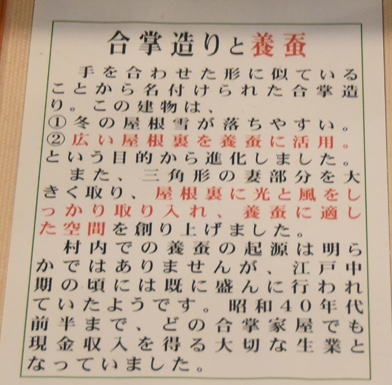 合掌造りと養蚕
手を合わせた形に似ている
ことから名付けられた合掌造
り。この建物は、
①冬の屋根雪が落ちやすい。
②広い屋根裏を養蚕に活用。
という目的から進化しました。
また、三角形の妻部分を大
きく取り、屋根裏に光と風をし
っかり取り入れ、養蚕に適し
た空間を創り上げました。
村内での養蚕の起源は明ら
かではありませんが、江戸中
期の頃には既に盛んに行われ
ていたようです。昭和40年代
前半まで、どの合掌家屋でも
現金収入を得る大切な生業と
なっていました。